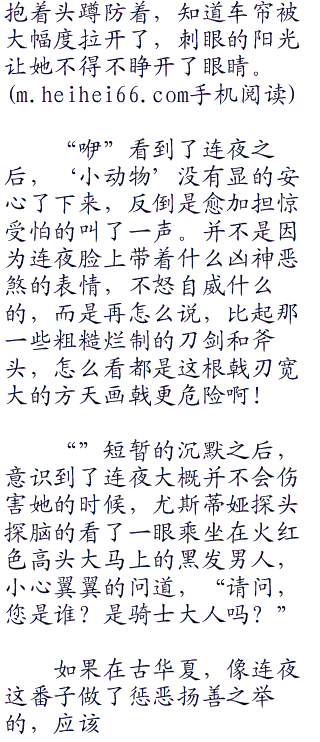 抱着头蹲防着，知道车帘被
大幅度拉开了，刺眼的阳光
让她不得不睁开了眼睛。
(m.heihei66.com手机阅读)
“咿”看到了连夜之
后，‘小动物’没有显的安
心了下来，反倒是愈加担惊
受怕的叫了一声。并不是因
为连夜脸上带着什么凶神恶
煞的表情，不怒自威什么
的，而是再怎么说，比起那
一些粗糙烂制的刀剑和斧
头，怎么看都是这根戟刃宽
大的方天画戟更危险啊！
“”短暂的沉默之后，
意识到了连夜大概并不会伤
害她的时候，尤斯蒂娅探头
探脑的看了一眼乘坐在火红
色高头大马上的黑发男人，
小心翼翼的问道，“请问，
您是谁？是骑士大人吗？”
如果在古华夏，像连夜
这番子做了惩恶扬善之举
的，应该